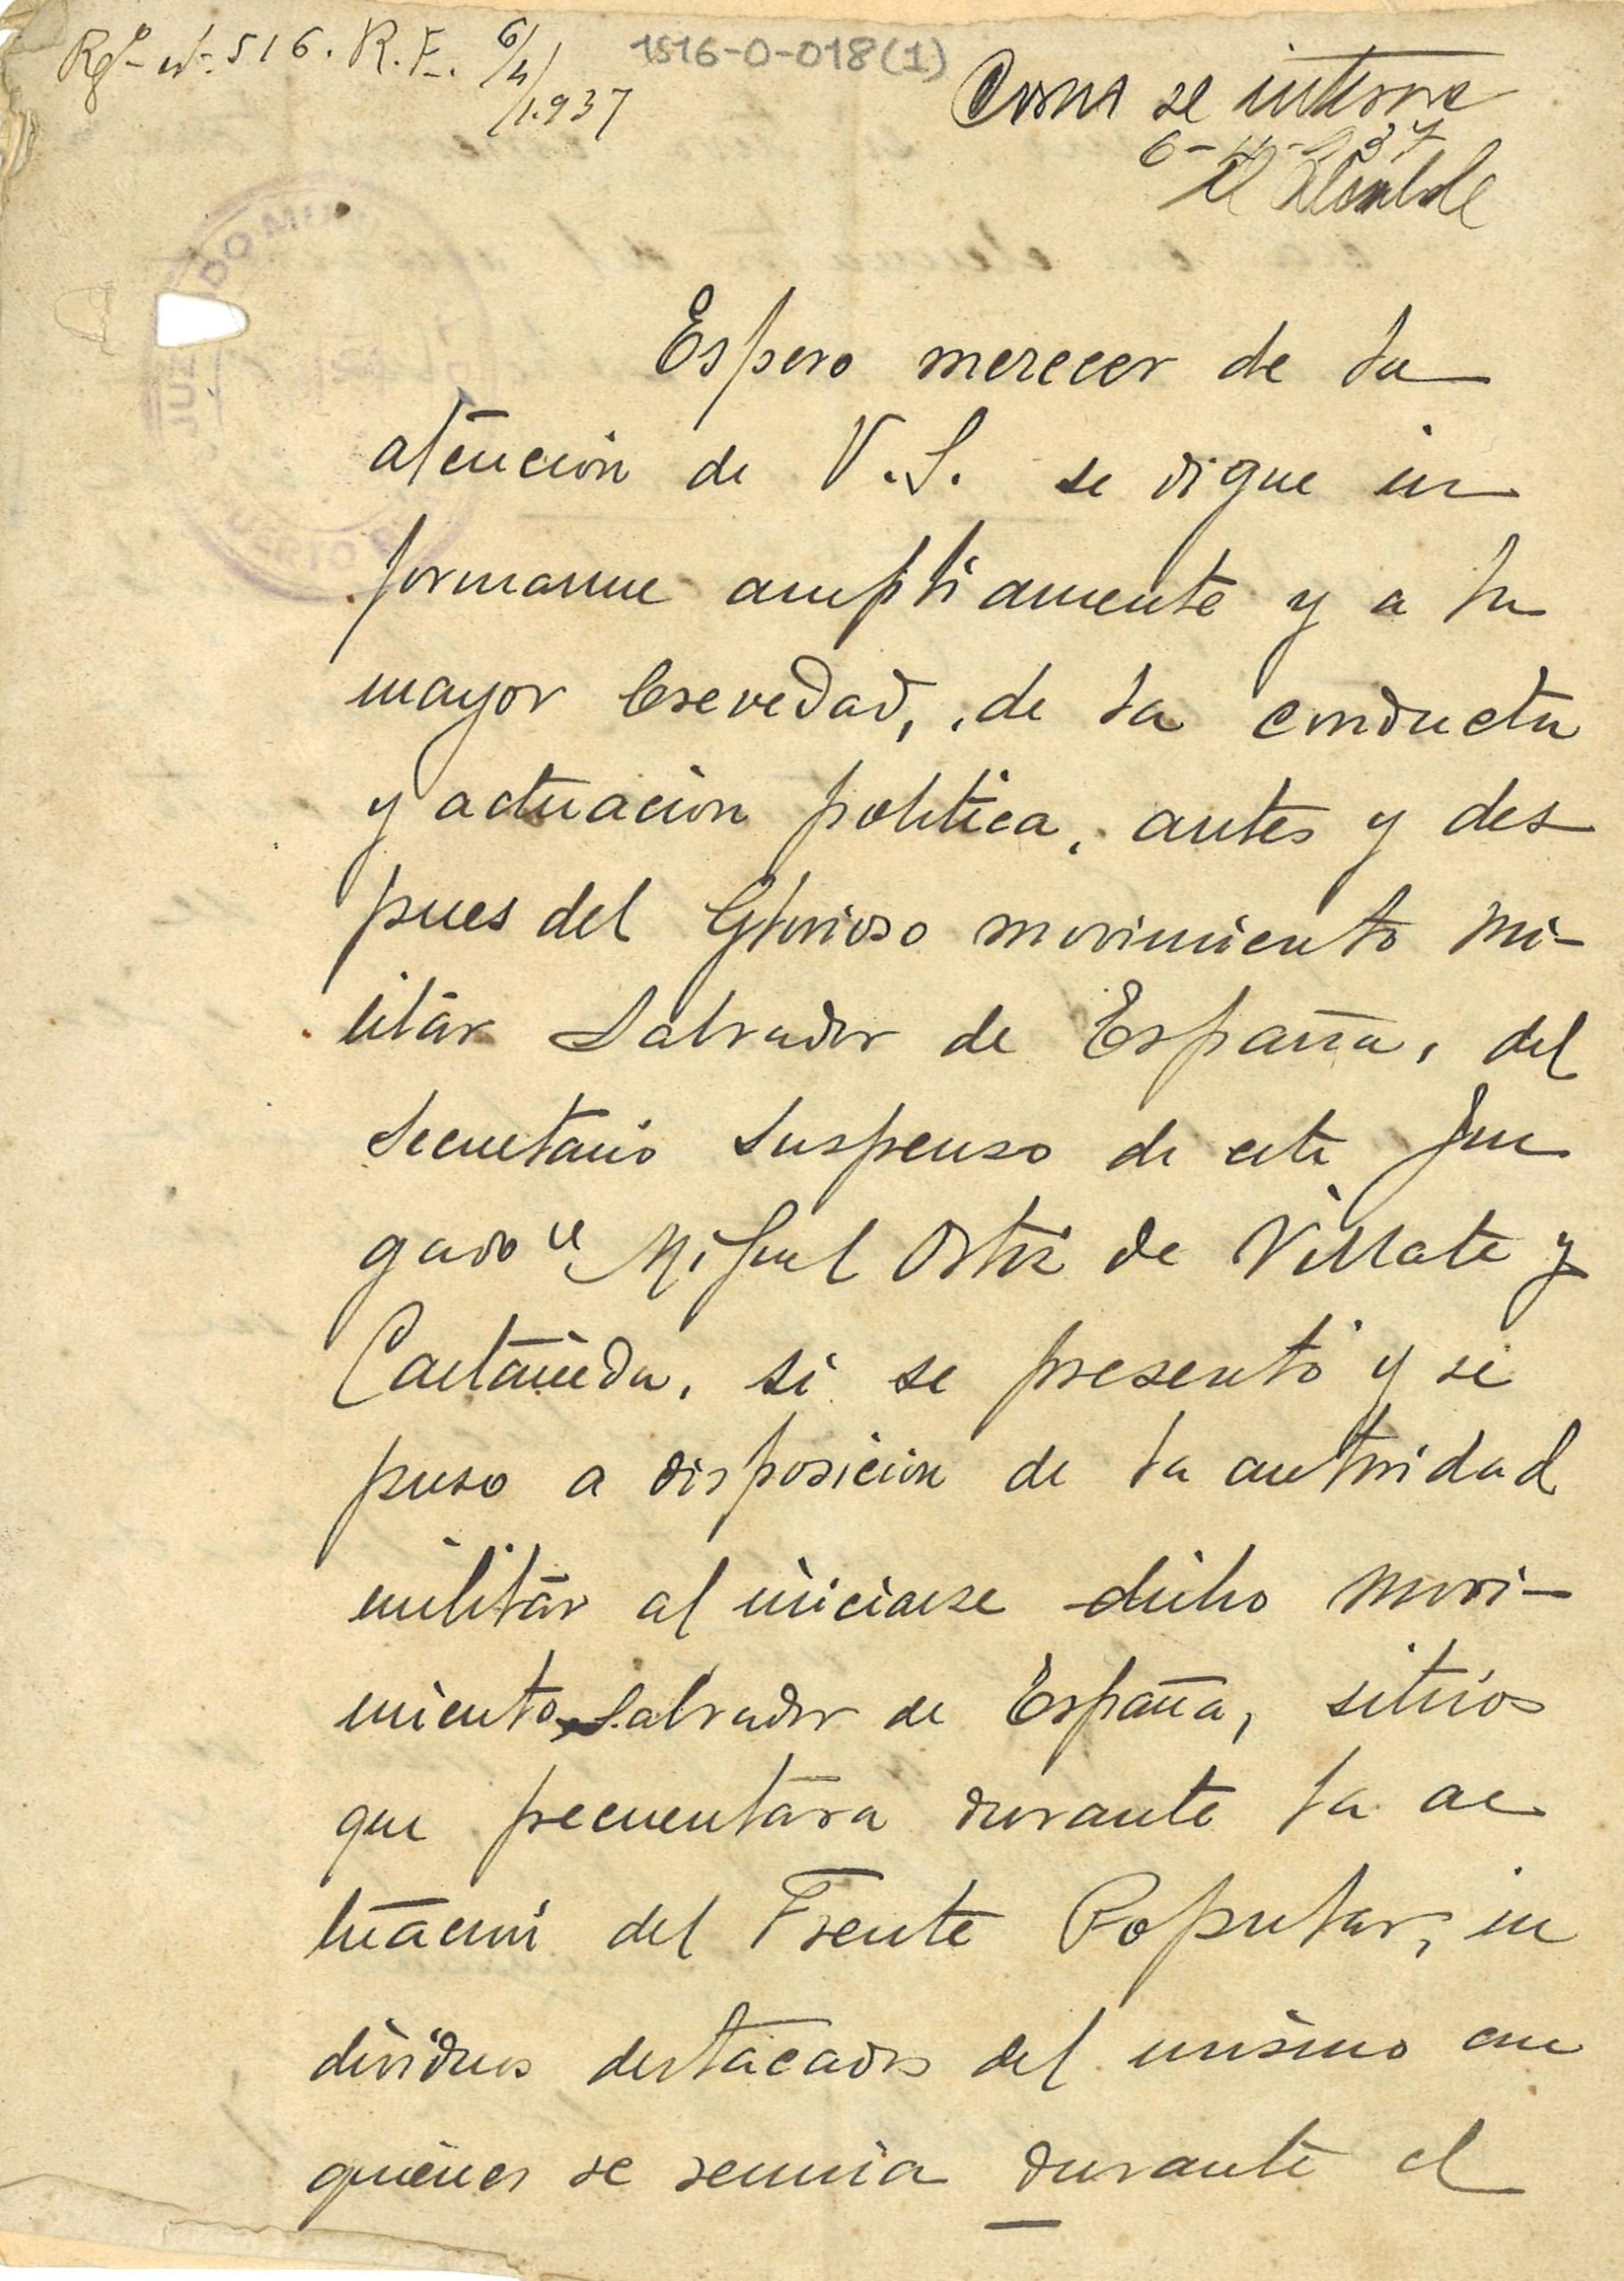 Rgº nº 516. R. F. 6/4/1937
1516-0-018(1)
Como se interesa
6-4-937
El Alcalde
JUZGADO MUNI
UERTO
Espero merecer de la
atención de V.S. se digne in
formarme ampliamente y a la
mayor brevedad, de la conducta
y actuación politica, antes y des
pues del Glorioso movimiento mi-
litar Salvador de España, del
Secretario suspenso de este Juz
gado D. Miguel Ortiz de Villate y
Castañeda, si se presentó y se
puso a disposición de la autoridad
militar al iniciarse dicho movi-
miento Salvador de España, sitios
que frecuentara durante la ac
tuación del Frente Popular, in
dividuos destacados del mismo con
quienes se reunia durante el